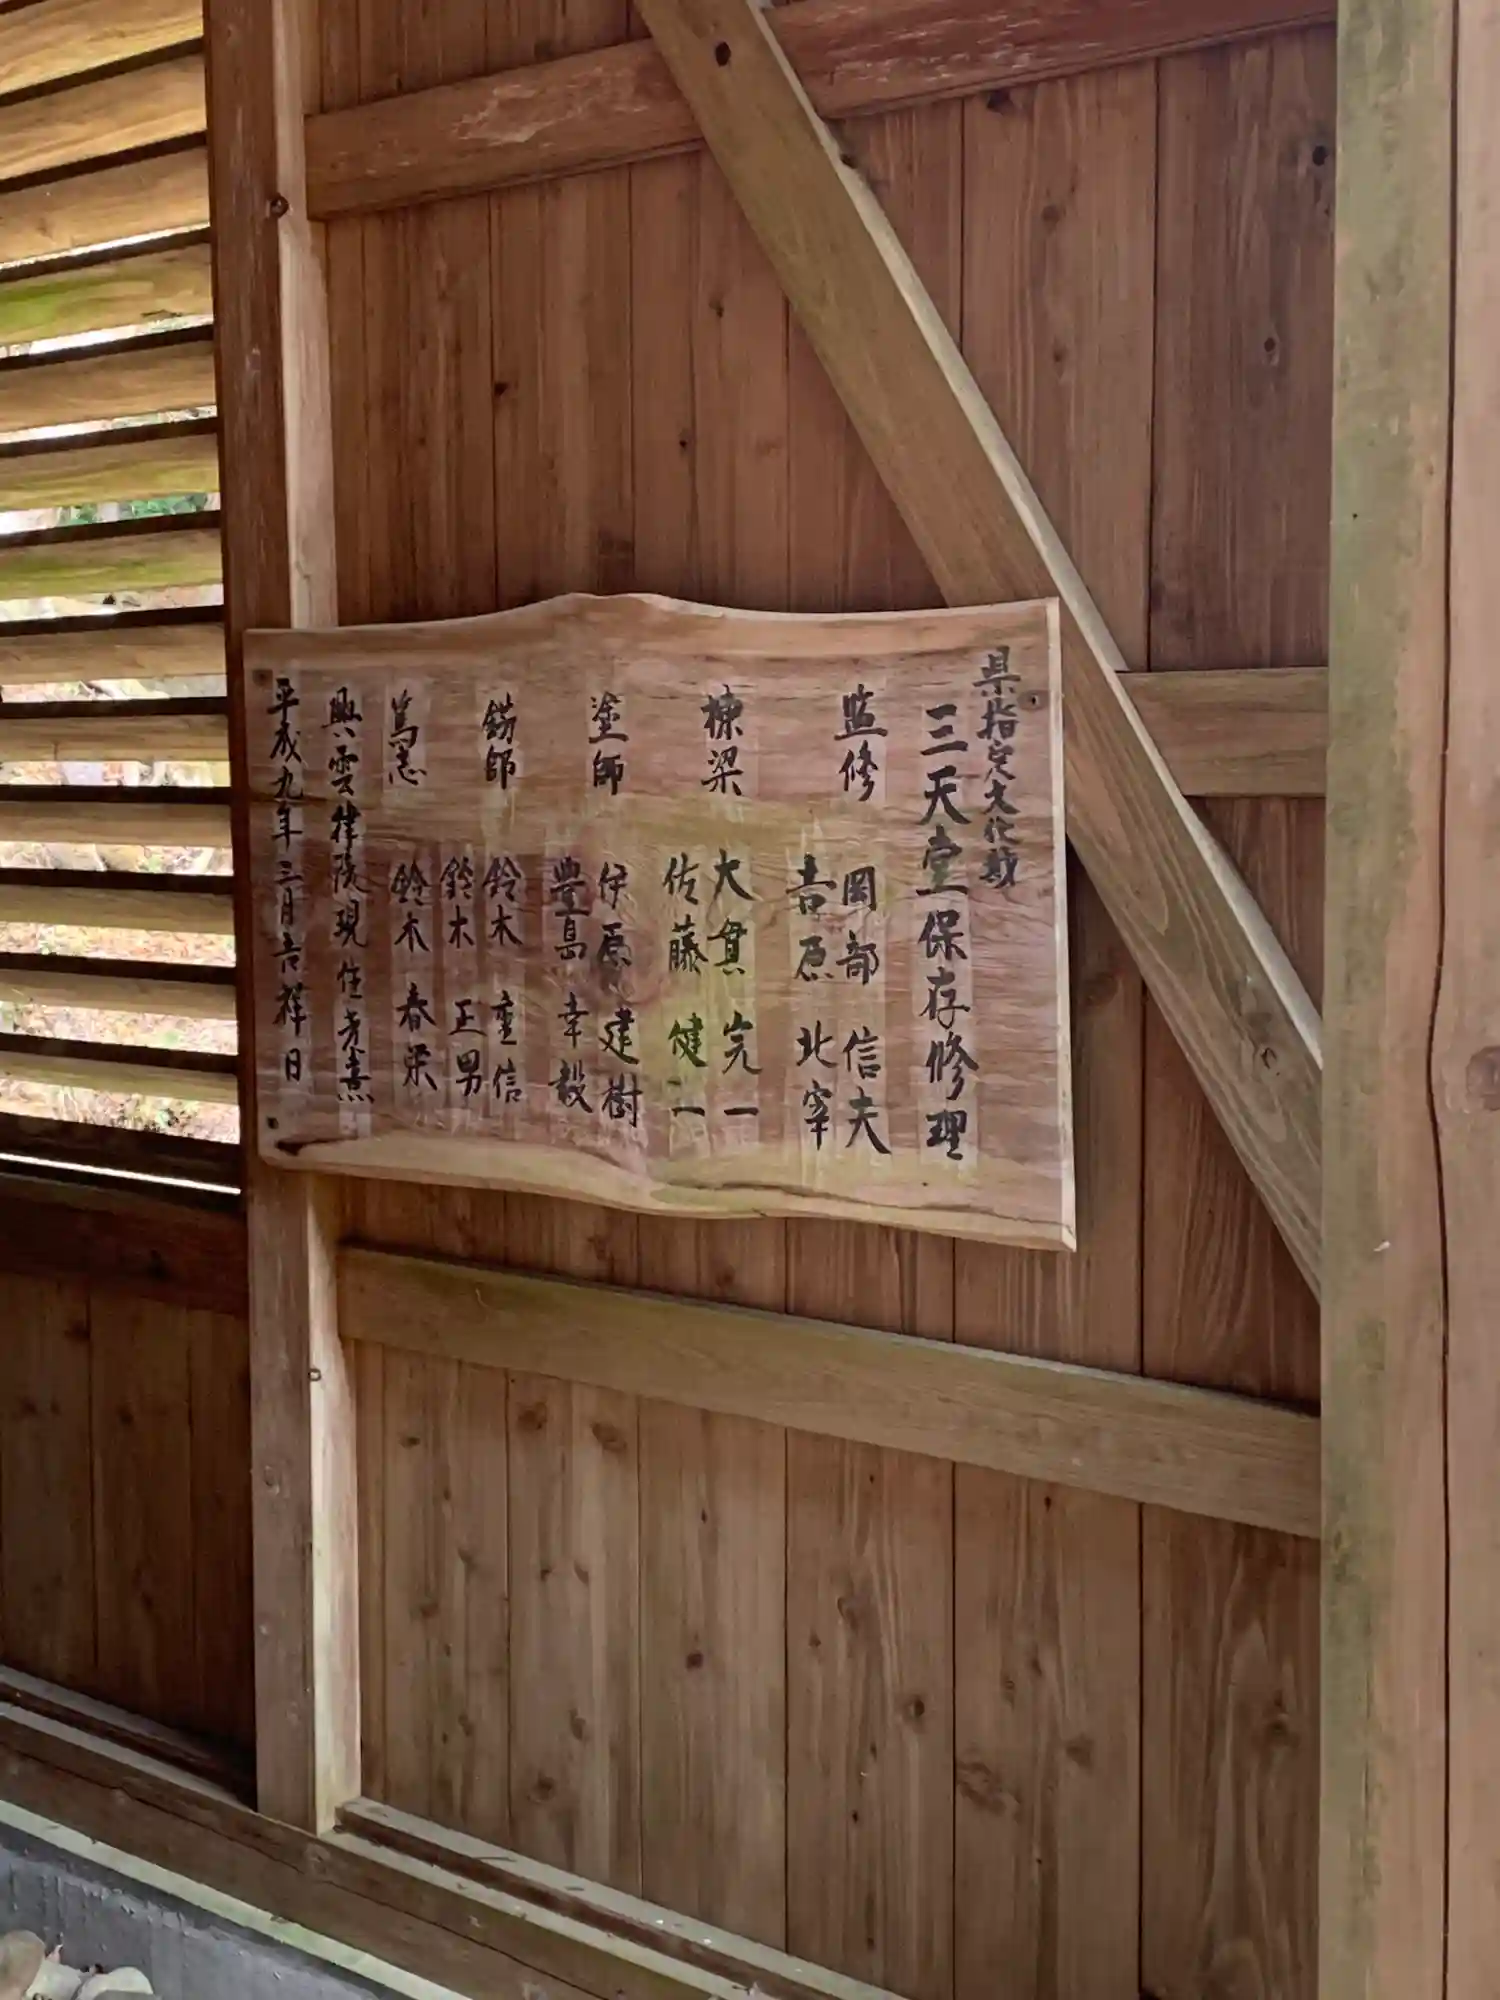 県指定文化財
三天堂保存修理
監修 岡部 信夫
吉原 北宰
棟梁 大貫 完一
佐藤 健一
塗師 伊原 建樹
豊島 幸毅
錺師 鈴木 重信
鈴木 正男
篤志 鈴木 春栄
興雲律院現住
平成九年三月吉祥日